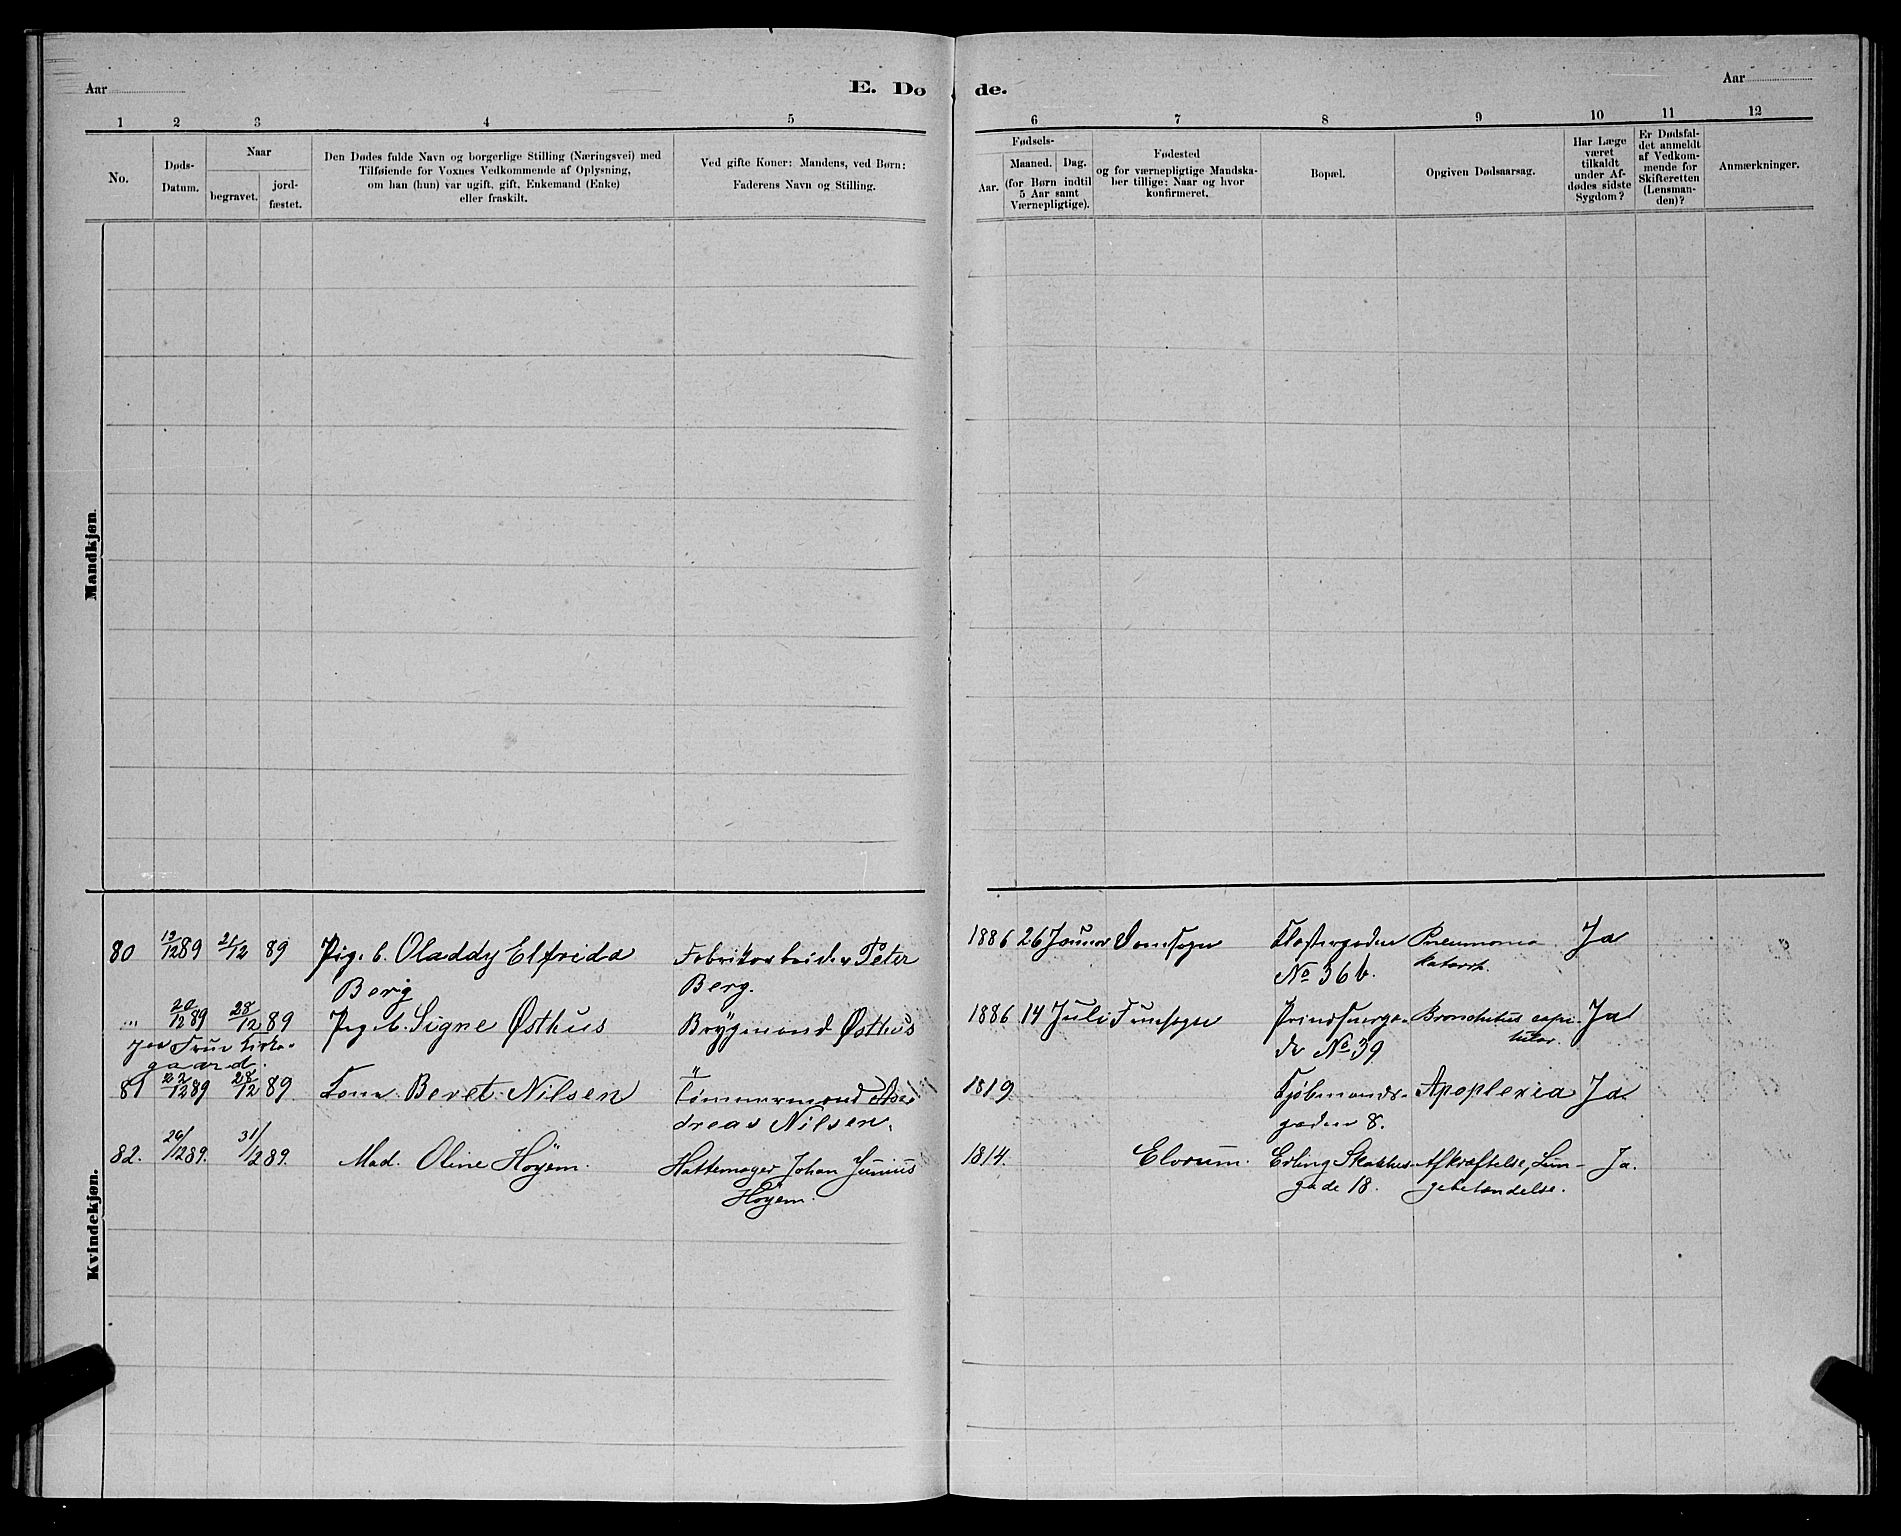 Aar
E. Dø
de.
Aar
1 2 3 4 5 6 7 8 9 10 11 12
No.
Døds-
Datum.
Naar
begravet.
jord-
fæstet.
Den Dødes fulde Navn og borgerlige Stilling (Næringsvei) med
Tilføiende for Voxnes Vedkommende af Oplysning,
om han (hun) var ugift, gift, Enkemand (Enke)
eller fraskilt.
Ved gifte Koner: Mandens, ved Børn:
Faderens Navn og Stilling.
Fødsels-
Aar.
Maaned. Dag.
(for Børn indtil
5 Aar samt
Værnepligtige).
Fødested
og for værnepligtige Mandska-
ber tillige: Naar og hvor
konfirmeret.
Bopæl.
Opgiven Dødsaarsag.
Har Læge
været
tilkaldt
under Af-
dødes sidste
Sygdom?
Er Dødsfal-
det anmeldt
af Vedkom-
mende for
Skifteretten
(Lensman-
den)?
Anmærkninger.
Mandkjøn.
Kvindekjøn.
80 13/12 89 21/12 89 Pigeb. Oladdy Elfrida Fabrikarbeider Peter 1886 26 Januar Domsogn Klostergaden Pneumonia Ja
Berg Berg. No 36 b. katarrh.
20/12 89 28/12 89 Pigeb. Signe Østhus Brygmand Østhus 1886 14 Juli Fruesogn Prindsensga- Bronchitis capi- Ja
Frue Kirke- de No 39 lular.
gaard.
81 22/12 89 28/12 89 Kone Beret Nilsen Tømmermand An- 1819 Kjøbmands- Apoplexia Ja
dreas Nilsen. gaden 8.
82. 26/12 89. 31/12 89. Mad. Oline Höyem. Hattemager Johan Junius 1814. Elvrum. Erling Skakkes Afkræftelse, Lun- Ja.
Höyem. gade 18. gebetændelse.